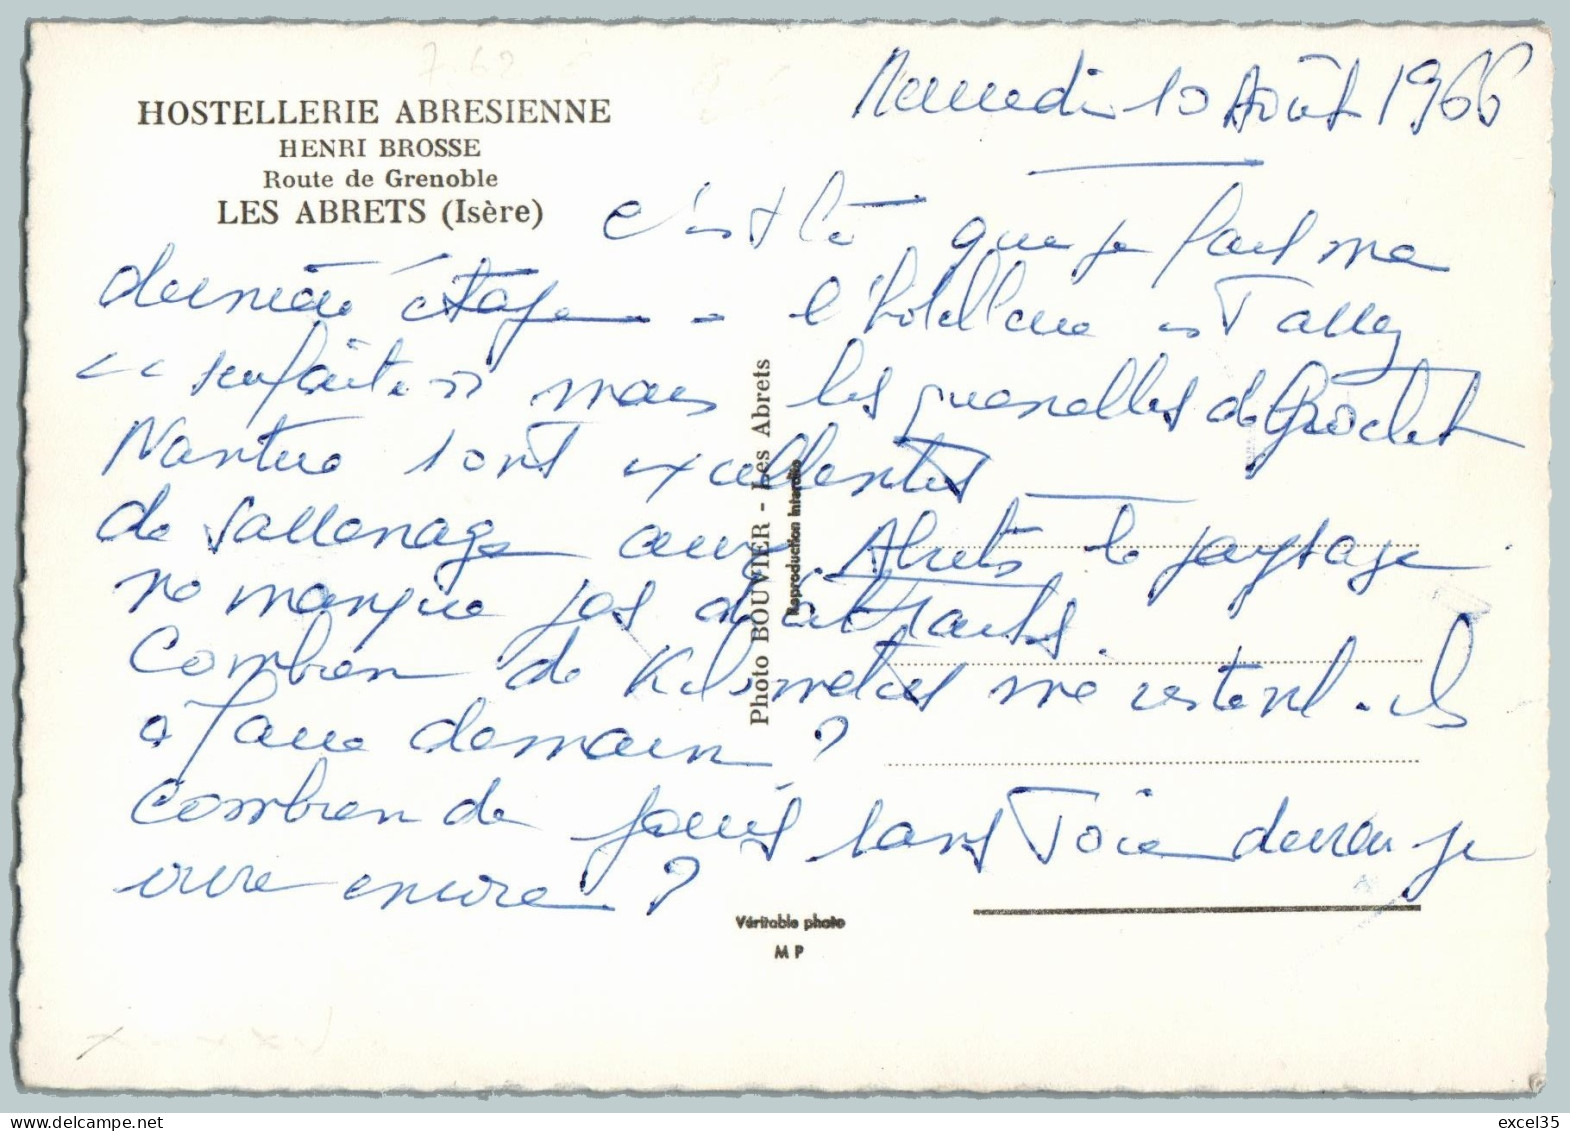 7.62
HOSTELLERIE ABRESIENNE
HENRI BROSSE
Route de Grenoble
LES ABRETS (Isère)
10 Août 1966
c'est là que je fais ma
dernière étape - l'hôtellerie est assez
mais les quenelles de Brochet
Nantua sont excellentes
de Sassenage aux Abrets le paysage
ne manque pas d'attraits.
Combien de Kilomètres me restent-ils
à faire demain ?
Combien de jours sans Toi devrai je
vivre encore ?
Photo BOUVIER - Les Abrets
Reproduction interdite
Véritable photo
M P
delcampe.net
excel35